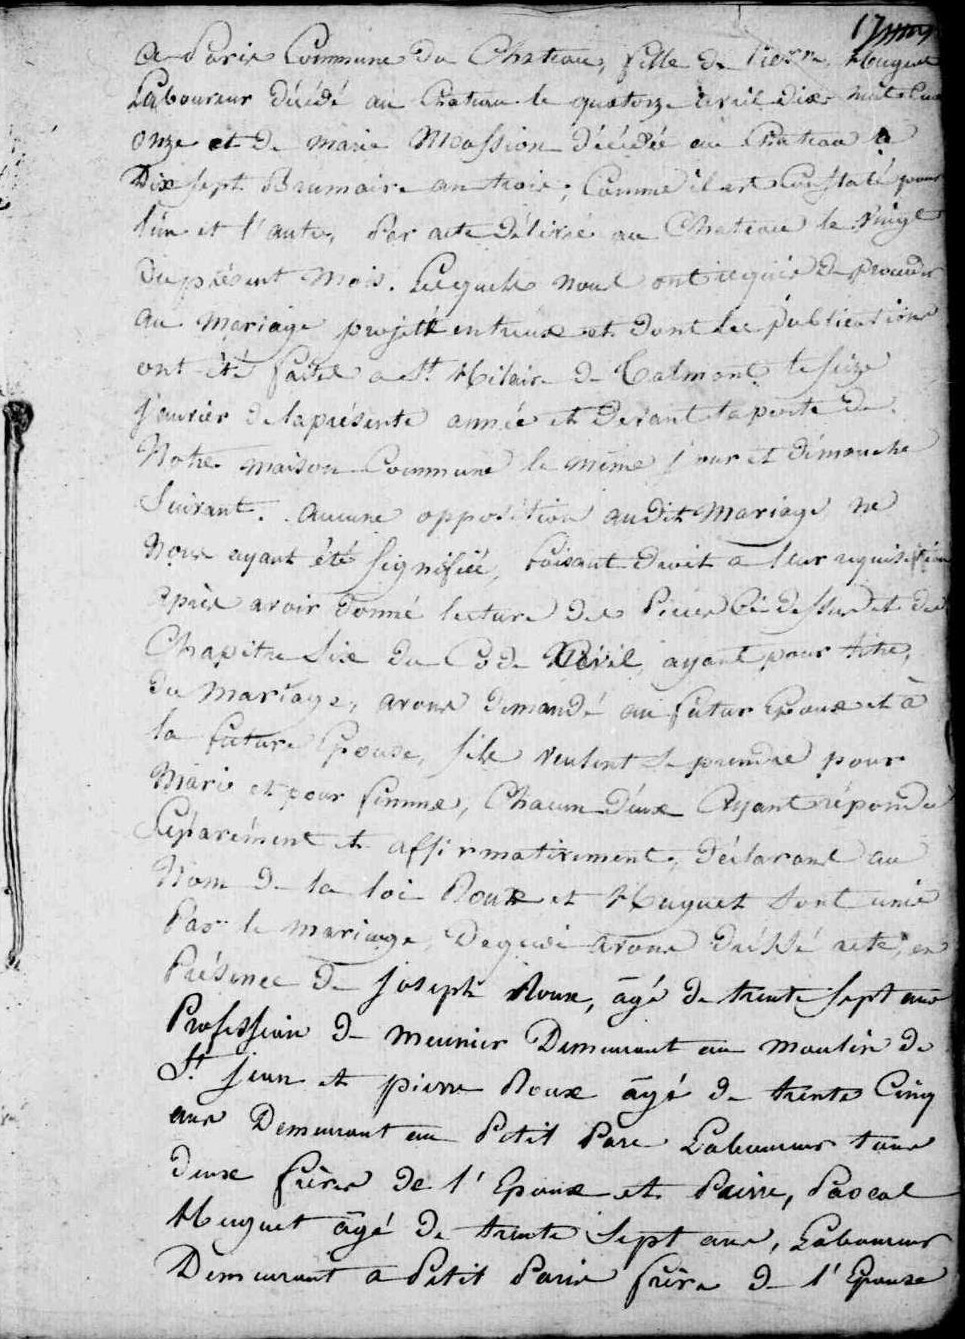 a Paris Commune du Chateau, fille de Pierre, Huguet
Laboureur décédé au Chateau le quatorze avril dix huit cent
onze et de marie Massion décédée au Chateau le
Dix sept Brumaire an trois; Comme il est Constaté pour
l'un et l'autre, Par acte délivré au Chateau le Vingt
du présent mois. Lesquels nous ont requis de proceder
au mariage projetté entreux et dont les publications
ont été faites a St. Hilaire de Talmont le seize
janvier de la présente année et devant la porte de
Notre maison Commune le même jour et dimanche
Suivant. aucune opposition audit mariage ne
Nous ayant été signifiée, faisant droit a leur requisition
après avoir donné lecture des Pieces Ci dessus et du
Chapitre Six du Code Civil, ayant pour titre,
du mariage, avons demandé au futur Epoux et à
la future Epouse, sils veulent se prendre pour
Mari et pour femme, Chacun d'eux Ayant répondu
Séparément et affirmativement, déclarons au
Nom de la loi Roux et Huguet Sont unis
Par le mariage, Dequoi avons dréssé acte, en
Présence de joseph Roux, âgé de trente sept ans
Profession de meunier Demeurant au moulin de
St. jean et pierre Roux âgé de trente Cinq
ans Demeurant au Petit Parc Laboureur tous
deux frères de l'Epoux et Pierre, Pascal
Huguet âgé de trente sept ans, Laboureur
Demeurant a Petit Paris frère de l'Epouse